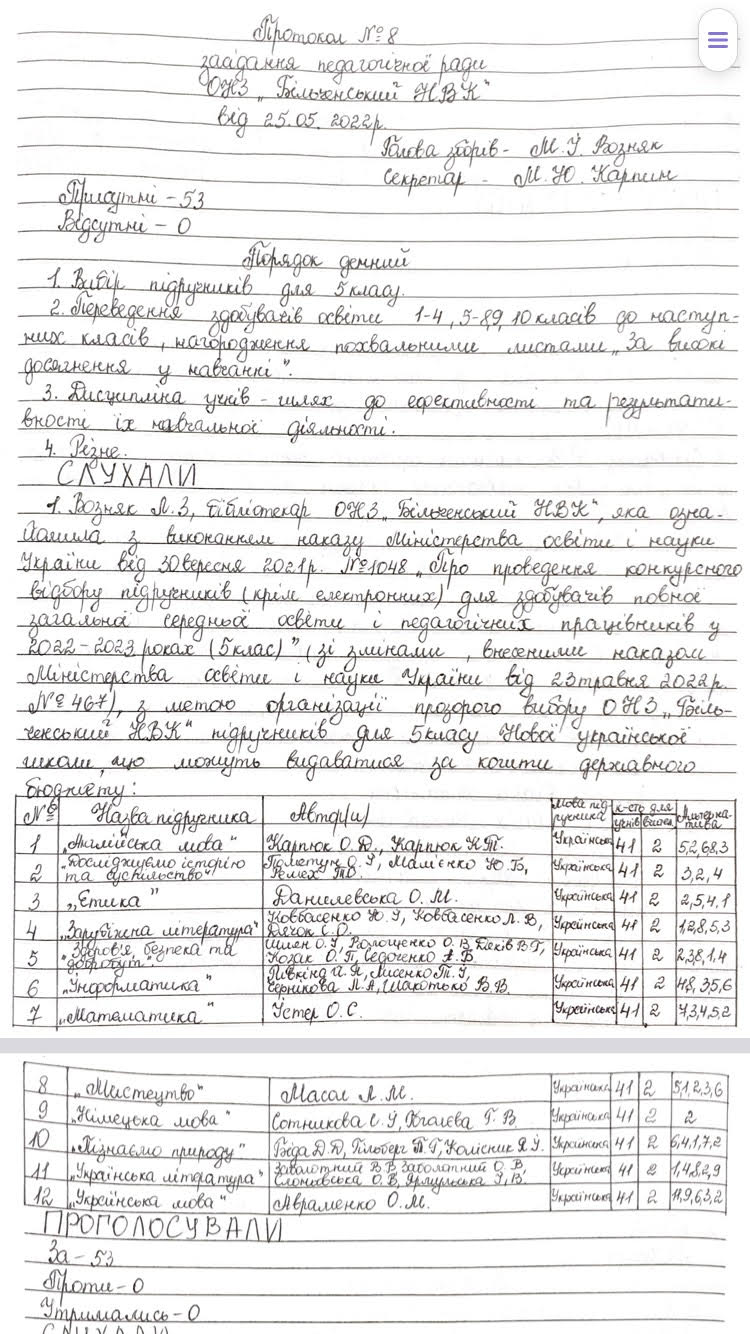 Протокол №8
засідання педагогічної ради
ОНЗ „Більченський НВК"
від 25.05.2022р.
Голова зборів - М. Й. Возняк
Секретар - М. Ю. Карпин
Присутні - 53
Відсутні - 0
Порядок денний
1. Вибір підручників для 5 класу.
2. Переведення здобувачів освіти 1-4, 5-8,9, 10 класів до наступ-
них класів, нагородження похвальними листами „За високі
досягнення у навчанні".
3. Дисципліна учнів - шлях до ефективності та результати-
вності їх навчальної діяльності.
4. Різне.
СЛУХАЛИ
1. Возняк Л.З, бібліотекар ОНЗ „Більченський НВК", яка озна-
йомила з виконанням наказу Міністерства освіти і науки
України від 30 вересня 2021р. №1048 „Про проведення конкурсного
відбору підручників (крім електронних) для здобувачів повної
загальної середньої освіти і педагогічних працівників у
2022-2023 роках (5 клас)" (зі змінами, внесеними наказом
Міністерства освіти і науки України від 23 травня 2022р.
№467), з метою організації прозорого вибору ОНЗ „Біль-
ченський НВК" підручників для 5 класу Нової української
школи, що можуть видаватися за кошти державного
бюджету:
№ Назва підручника Автор(и) Мова підручника к-сть для учнів Альтернатива
1 „Англійська мова" Карпюк О.Д., Карпюк К.Т. Українська 41 2 5,2,6,8,3
2 „Досліджуємо історію та суспільство" Пометун О.І, Малієнко Ю.Б, Ремех Т.О. Українська 41 2 3,2,4
3 „Етика" Данилевська О.М. Українська 41 2 2,5,4,1
4 „Зарубіжна література" Ковбасенко Ю.І, Ковбасенко Л.В, Дячок С.О. Українська 41 2 1,2,8,5,3
5 „Здоров'я, безпека та добробут" Шиян О.І, Волощенко О.В, Дяків В.Г, Козак О.П, Седоченко А.Б. Українська 41 2 2,3,8,1,4
6 „Інформатика" Ривкінд Й.Я, Лисенко Т.І, Чернікова Л.А, Шакотько В.В. Українська 41 2 4,8,3,5,6
7 „Математика" Істер О.С. Українська 41 2 7,3,4,5,2
8 „Мистецтво" Масол Л.М. Українська 41 2 5,1,2,3,6
9 „Німецька мова" Сотникова С.І, Гоголєва Г.В Українська 41 2 2
10 „Пізнаємо природу" Біда Д.Д, Гільберг Т.Г, Колісник Я.І. Українська 41 2 6,4,1,7,2
11 „Українська література" Заболотний В.В, Заболотний О.В, Слоньовська О.В, Ярмульська І.В. Українська 41 2 1,4,8,2,9
12 „Українська мова" Авраменко О.М. Українська 41 2 11,9,6,3,2
ПРОГОЛОСУВАЛИ
За - 53
Проти - 0
Утримались - 0
СЛУХАЛИ